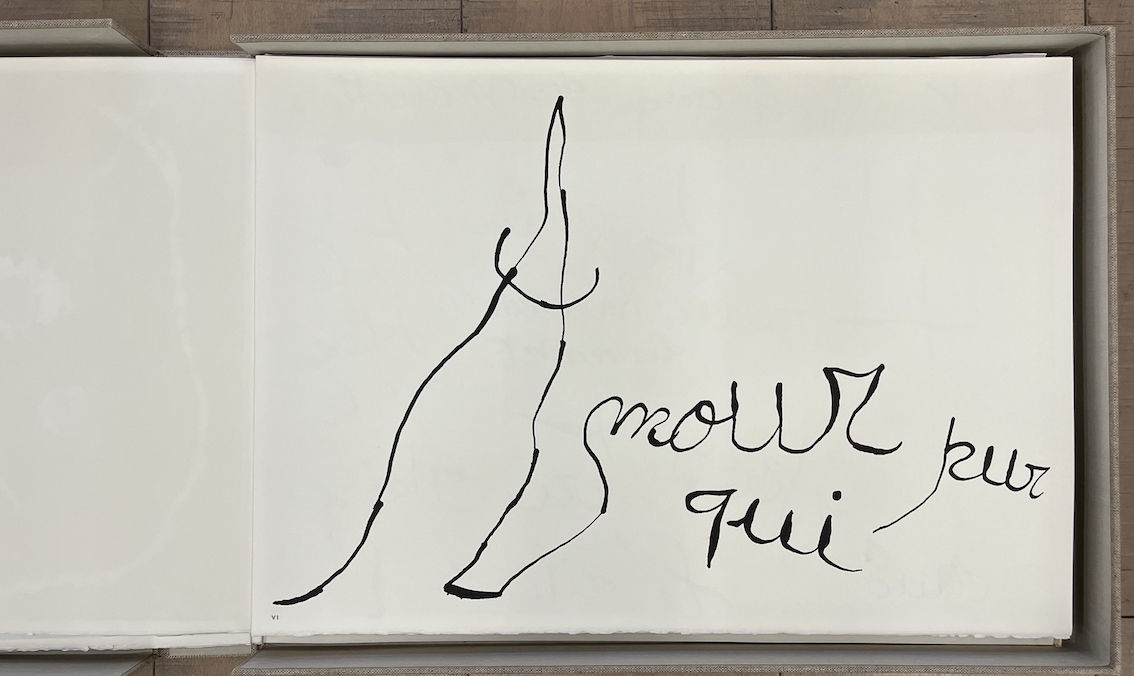 Amour pur
qui
VI